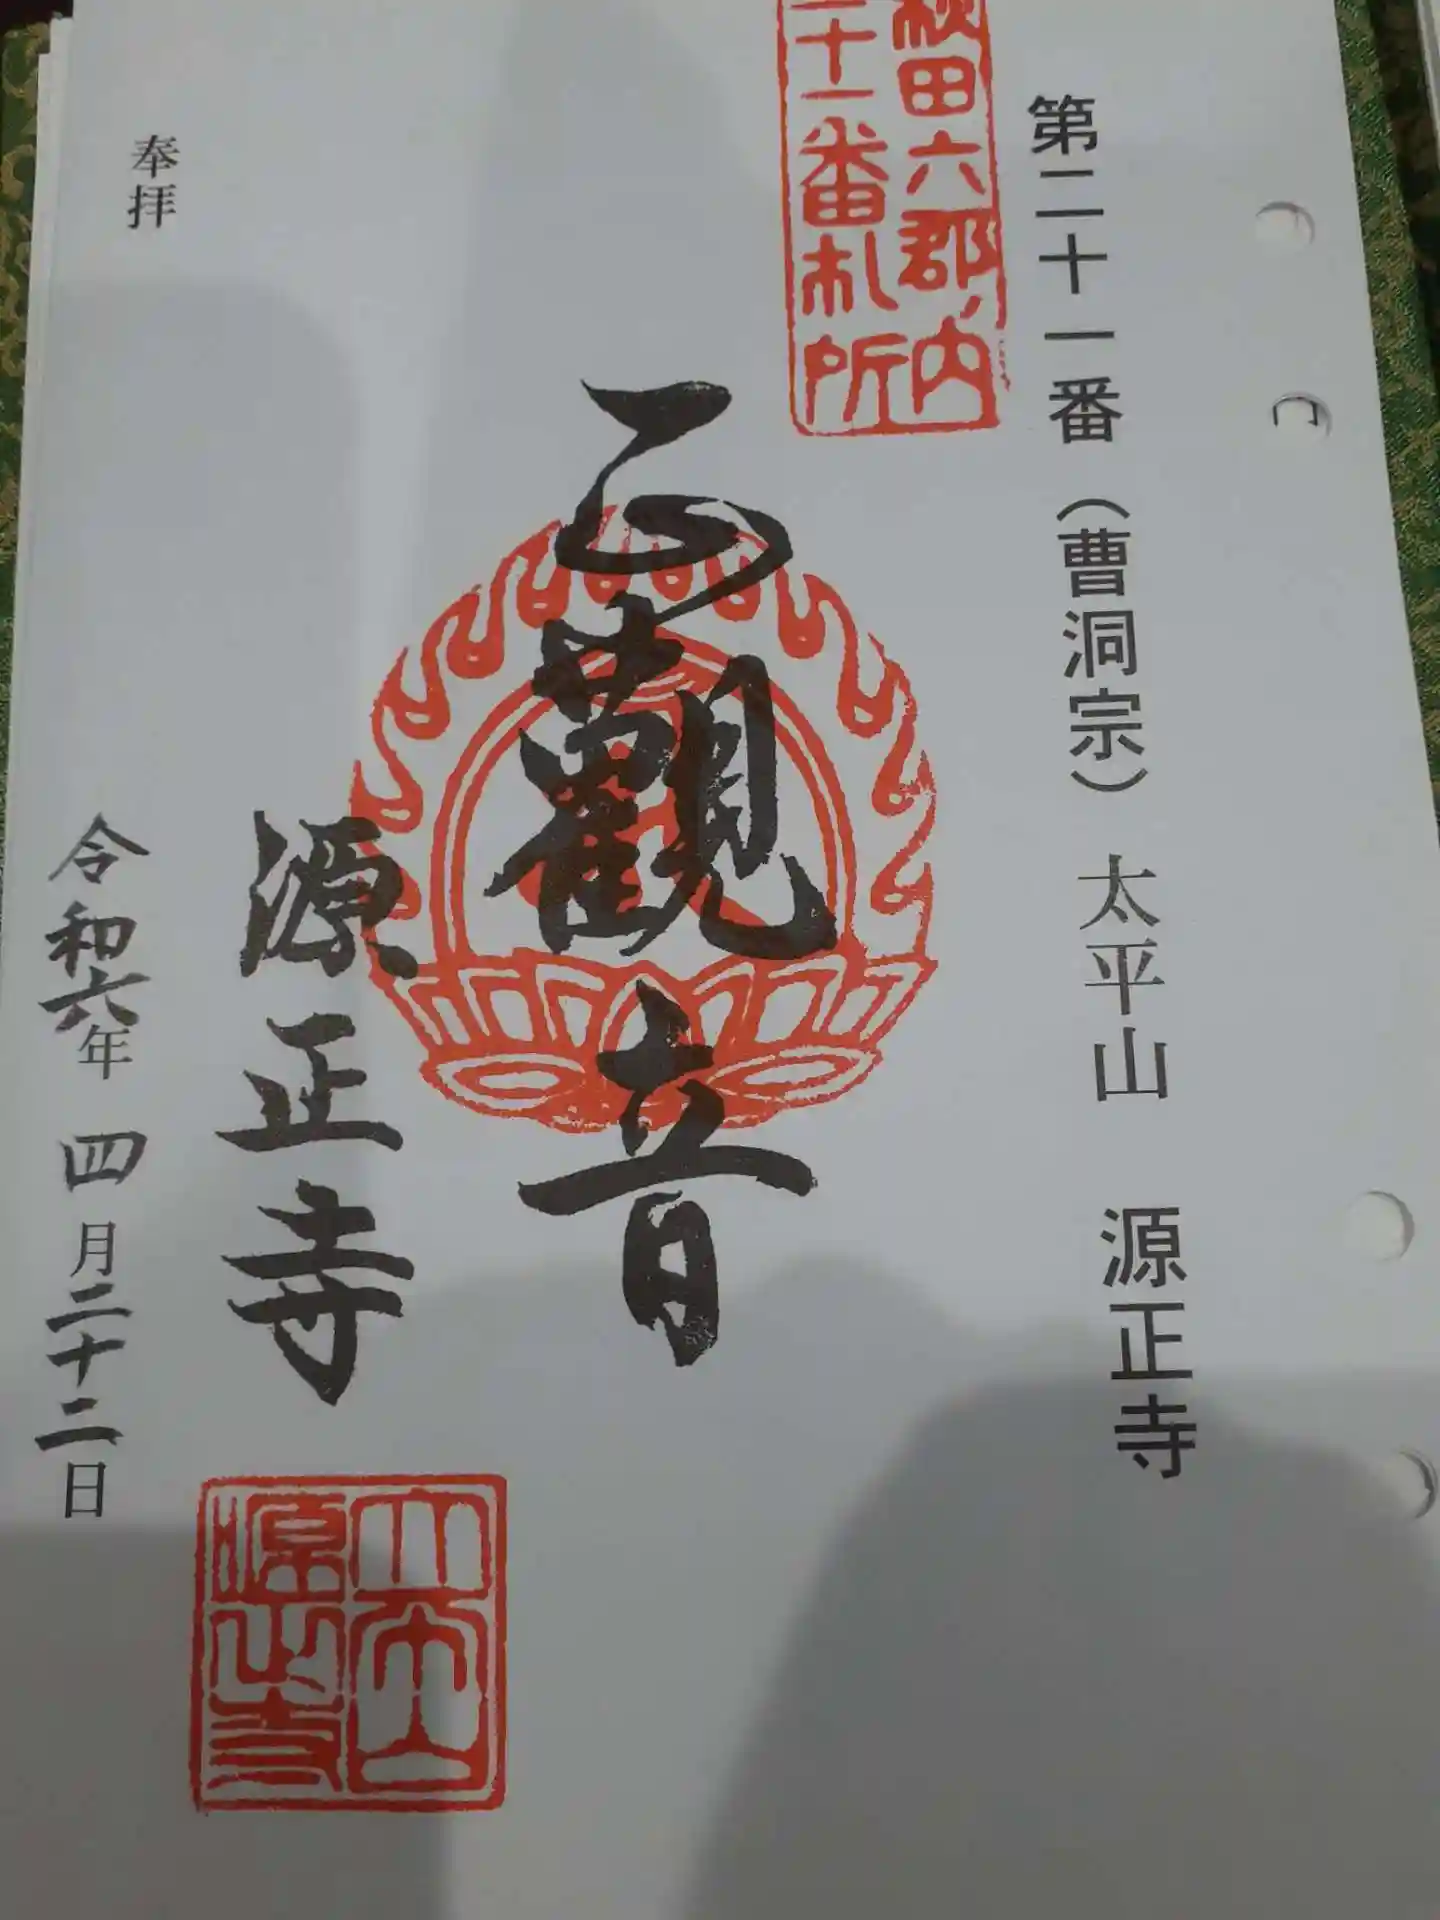 第二十一番（曹洞宗）　太平山　源正寺
秋田六郡内
二十一番札所
正觀音
源正寺
太平山
源正寺
奉拝
令和六年　四月二十二日